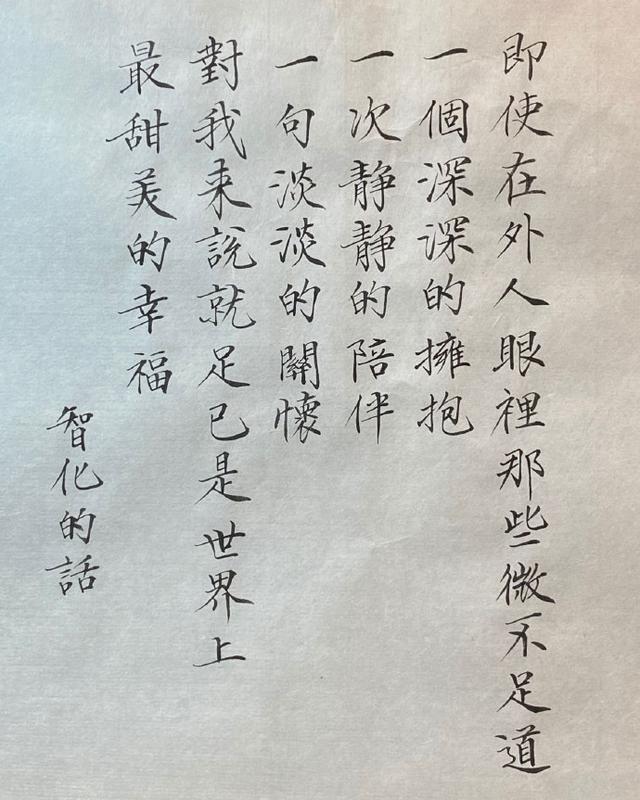 即使在外人眼裡那些微不足道
一個深深的擁抱
一次静静的陪伴
一句淡淡的關懷
對我来說就足已是世界上
最甜美的幸福
智化的話